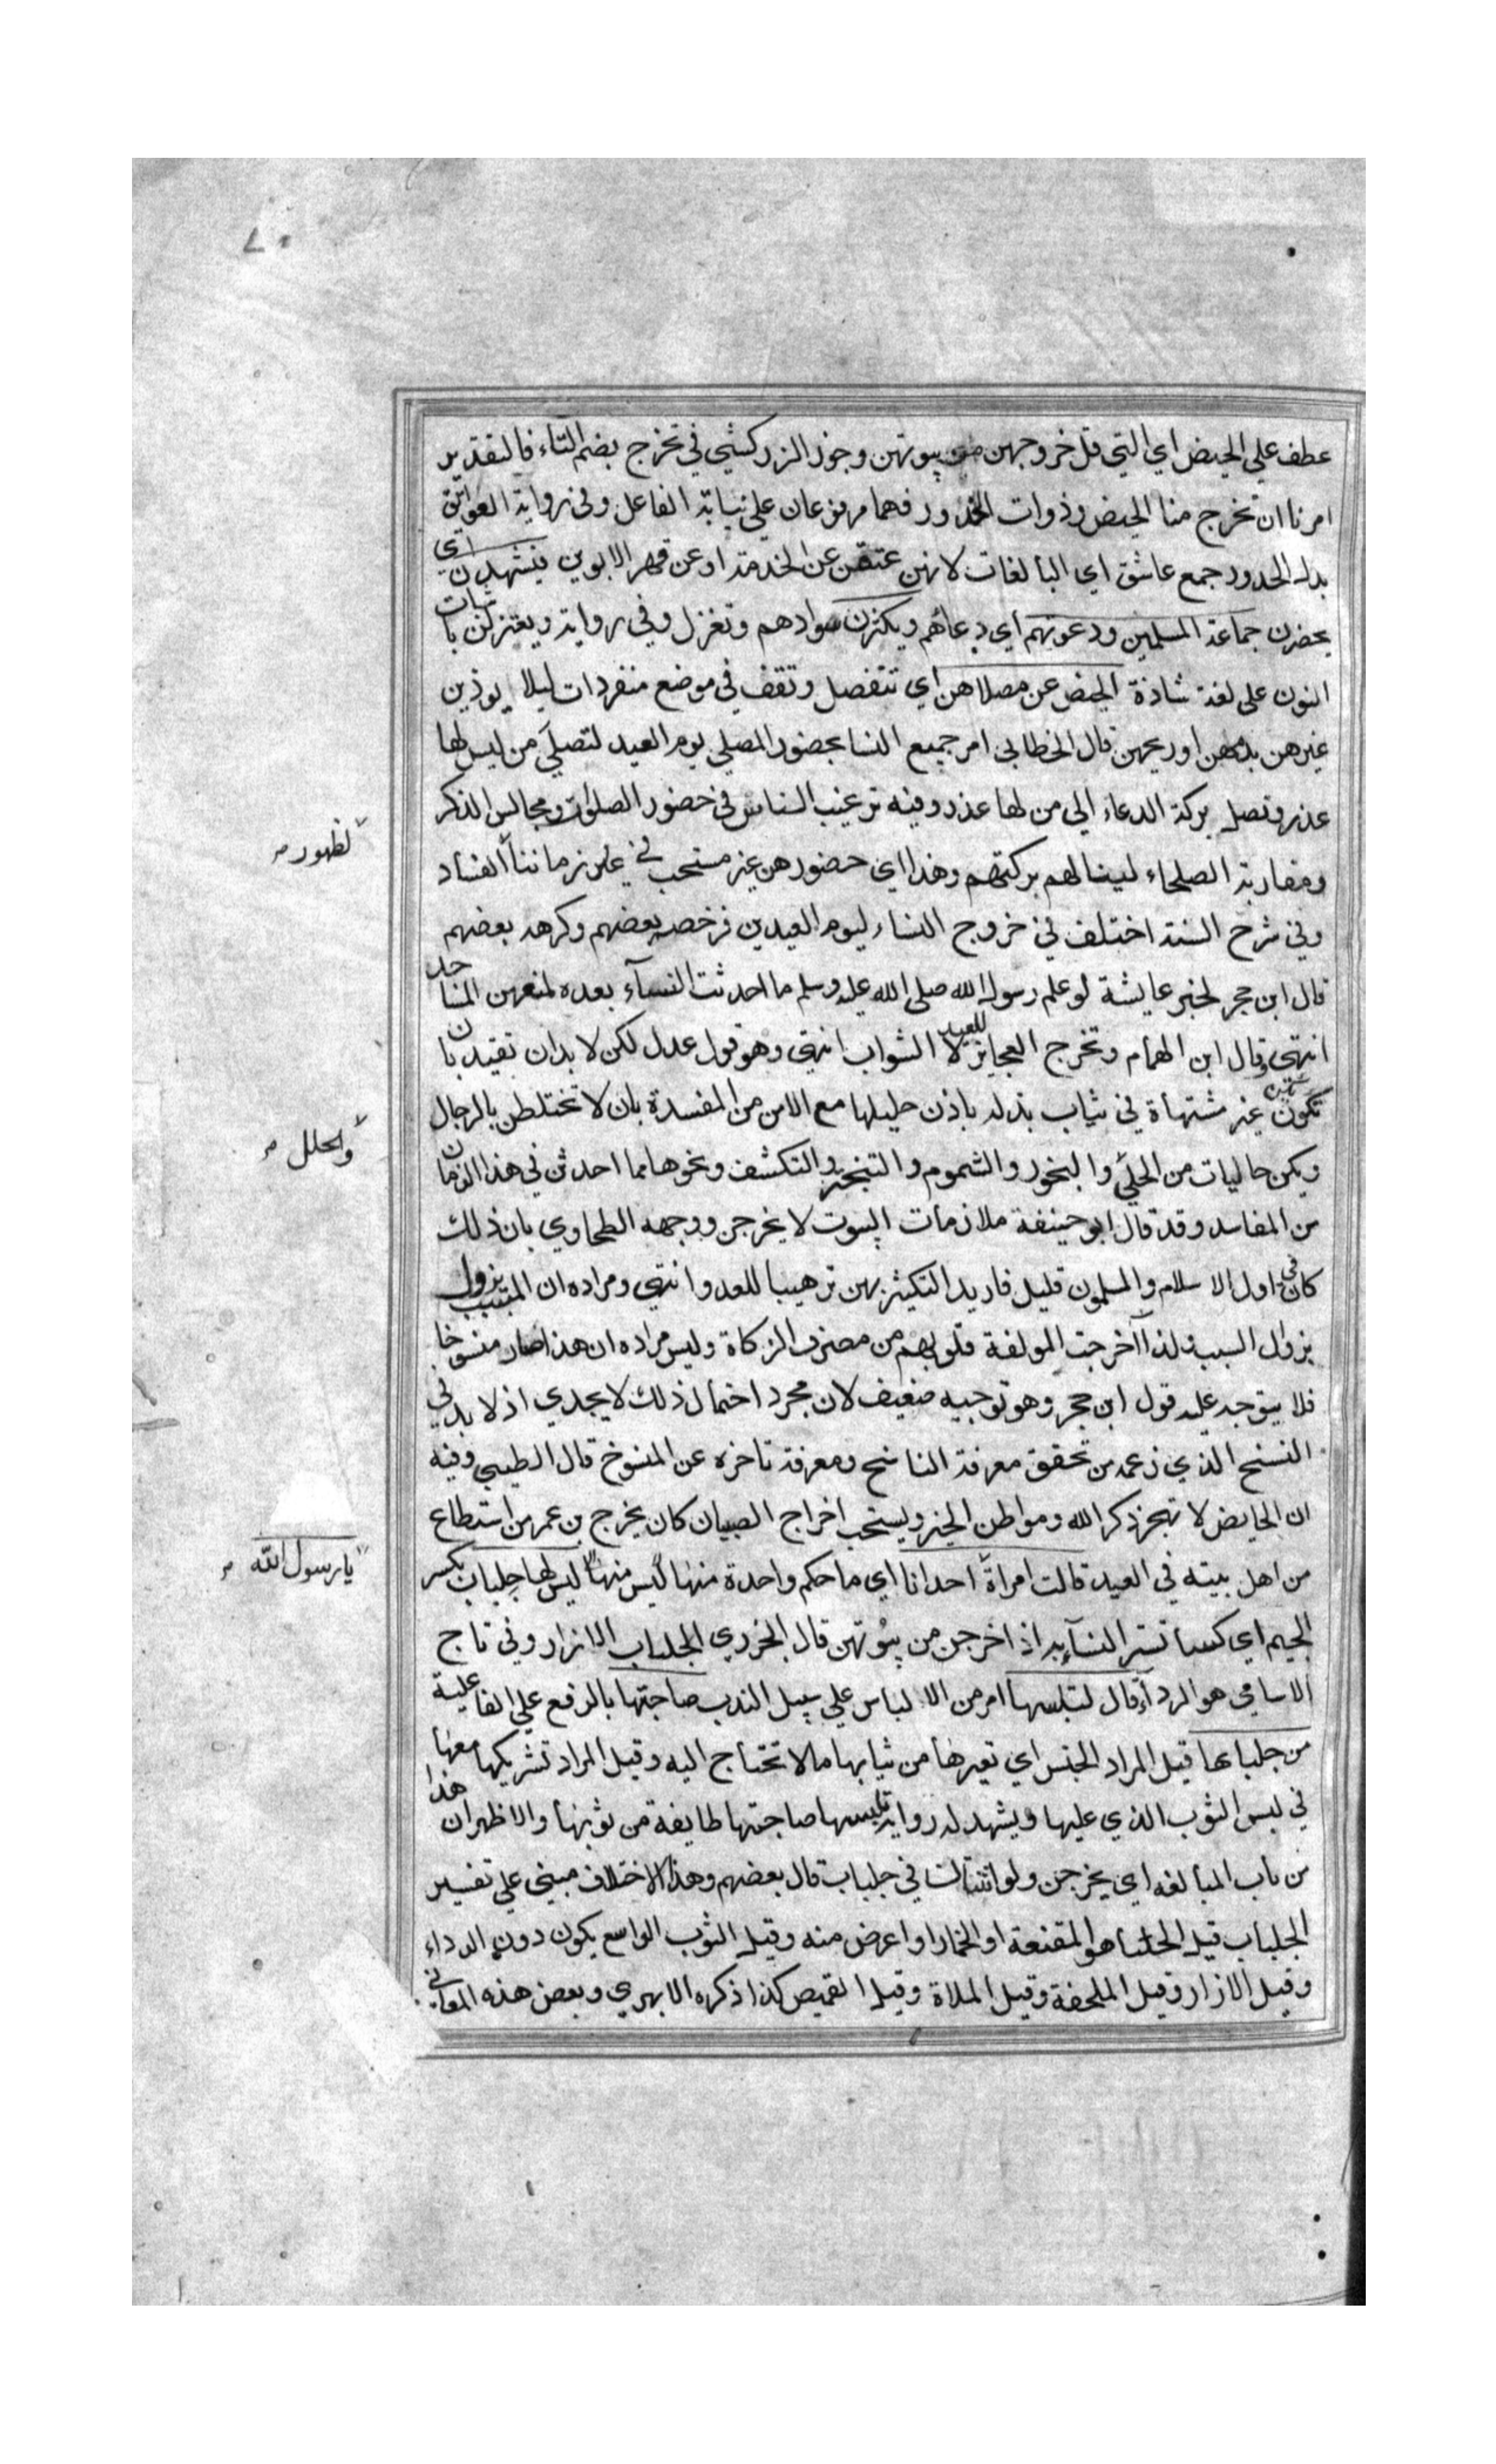 ٧٠
عطف علي الحيض اي التي قل خروجهن من بيوتهن وجوز الزركشي في تخرج بضم التاء فالتقدير
امرنا ان تخرج منا الحيض وذوات الخدور فهما مرفوعان علي نيابة الفاعل وفي رواية العواتق
بدل الخدور جمع عاتق اي البالغات لانهن عتقن عن الخدمة او عن قهر الابوين فيشهدن اي
يحضرن جماعة المسلمين ودعوتهم اي دعائهم ويكثرن سوادهم وتعزل وفي رواية ويعتزلن باثبات
النون علي لغة شاذة الحيض عن مصلاهن اي تنفصل وتقف في موضع منفردات ليلا يوذين
غيرهن بدمهن او ريحهن قال الخطابي امر جميع النسا بحضور المصلي يوم العيد لتصلي من ليس لها
عذر وتصل بركة الدعاء الي من لها عذر وفيه ترغيب الناس في حضور الصلوات ومجالس الذكر
ومقاربة الصلحاء لينالهم بركتهم وهذا اي حضورهن غير مستحب في زماننا الفساد
لظهور
وفي شرح السنة اختلف في خروج النساء ليوم العيدين فرخص بعضهم وكرهه بعضهم
قال ابن حجر لخبر عايشة لو علم رسول الله صلى الله عليه وسلم ما احدثت النسآء بعده لمنعهن المساجد
انتهي وقال ابن الهمام وتخرج العجايز للعيد لا الشواب انتهي وهو قول عدل لكن لا بد ان تقيد بان
تكون غير مشتهاة في ثياب بذلة باذن حليلها مع الامن من المفسدة بان لا تختلطن بالرجال
ويكن خاليات من الحلي والبخور والشموم والتبختر والتكشف ونحوها مما احدثن في هذا الزمان
والحلل
من المفاسد وقد قال ابو حنيفة ملازمات البيوت لا يخرجن ووجهه الطحاوي بان ذلك
كان في اول الاسلام والمسلمون قليل فاريد التكثير بهن ترهيبا للعدو انتهي ومراده ان المسبب يزول
بزوال السبب ولذا اخرجت المولفة قلوبهم من مصرف الزكاة وليس مراده ان هذا صار منسوخا
فلا يتوجه عليه قول ابن حجر وهو توجيه ضعيف لان مجرد احتمال ذلك لا يجدي اذ لا بد في
النسخ الذي زعمه من تحقق معرفة الناسخ ومعرفة تاخره عن المنسوخ قال الطيبي وفيه
ان الحايض لا تهجر ذكر الله ومواطن الخير ويستحب اخراج الصبيان كان يخرج بن عمر من استطاع
من اهل بيته في العيد قالت امراة احدانا اي ما حكم واحدة منها ليس لها جلباب بكسر
يا رسول الله
الجيم اي كسا تستر النسآء به اذا خرجن من بيوتهن قال الجزري الجلباب الازار وفي تاج
الاسامي هو الردآء قال لتلبسها امر من الالباس علي سبيل الندب صاحبتها بالرفع علي الفاعلية
من جلبابها قيل المراد الجنس اي تعيرها من ثيابها ما لا تحتاج اليه وقيل المراد تشريكها معها
في لبس الثوب الذي عليها ويشهد له رواية تلبسها صاحبتها طايفة من ثوبها والاظهر ان هذا
من باب المبالغة اي يخرجن ولو اثنتان في جلباب قال بعضهم وهذا الاختلاف مبني علي تفسير
الجلباب قيل الجلباب هو المقنعة او الخمار او اعرض منه وقيل الثوب الواسع يكون دون الرداء
وقيل الازار وقيل الملحفة وقيل الملاة وقيل القميص كذا ذكره الابهري وبعض هذه المعاني